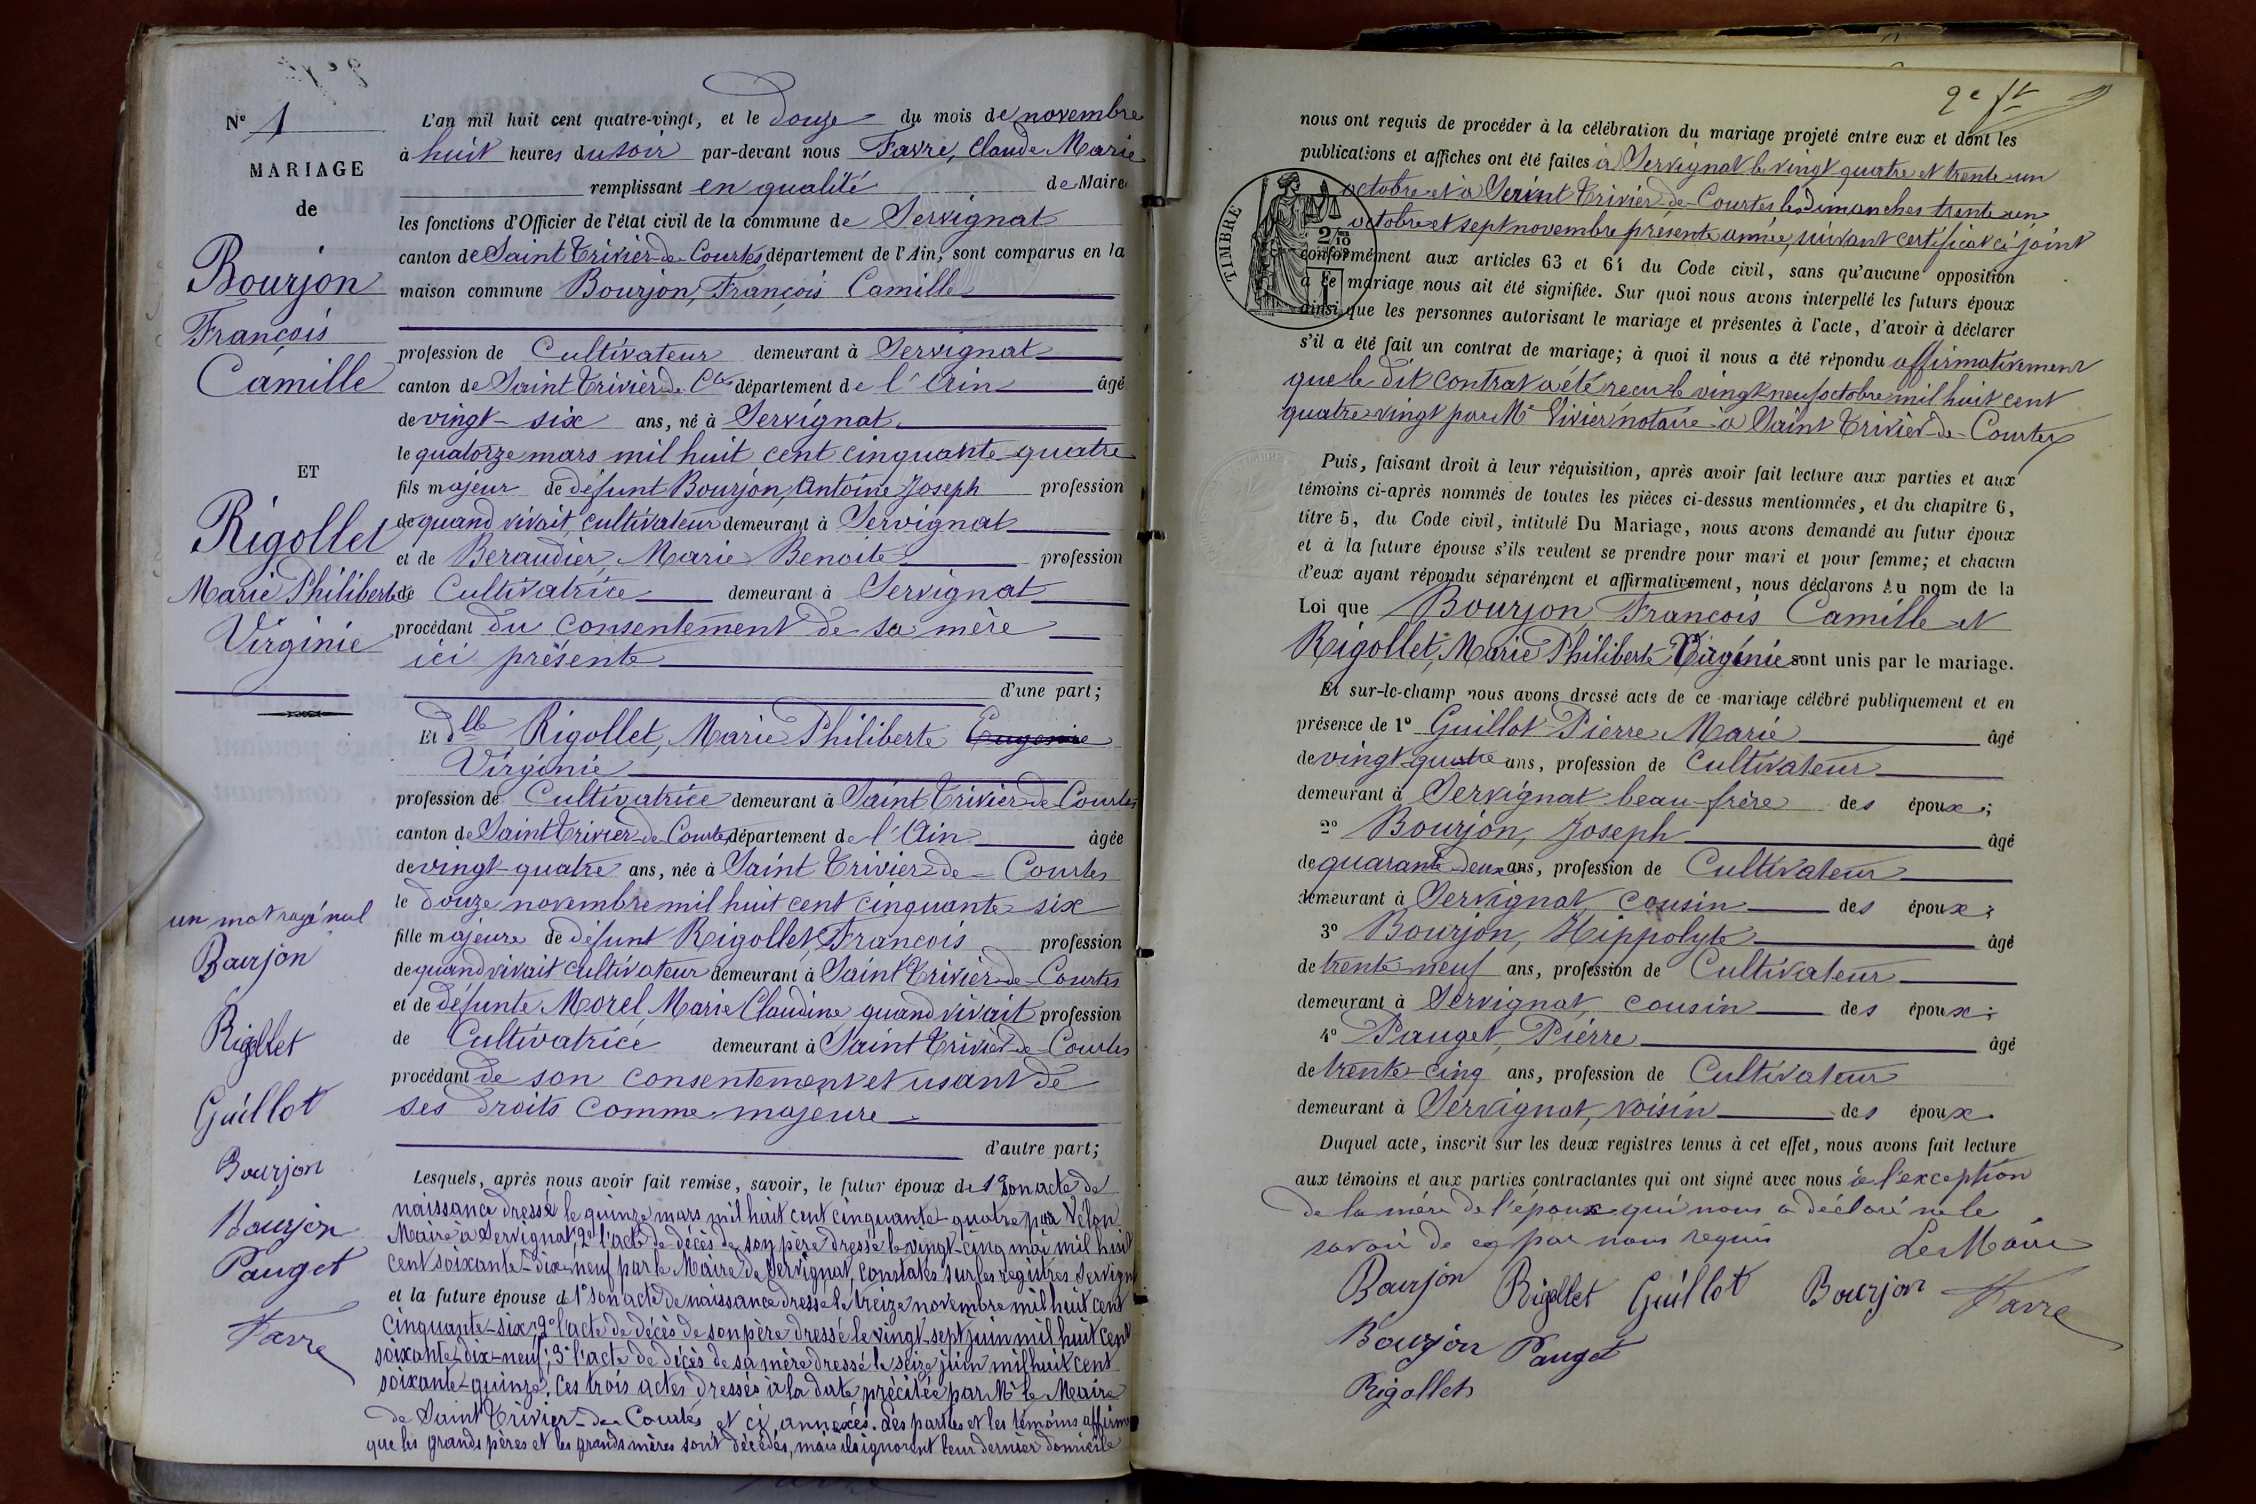 N° 1
MARIAGE
de
Bourjon
François
Camille
ET
Rigollet
Marie Philiberte
Virginie
un mot rayé nul
Bourjon
Rigollet
Guillot
Bourjon
Bourjon
Pauget
Favre
L'an mil huit cent quatre-vingt, et le douze du mois de novembre
à huit heures du soir par-devant nous Favre, Claude Marie
remplissant en qualité de Maire
les fonctions d'Officier de l'état civil de la commune de Servignat
canton de Saint Trivier-de-Courtes département de l'Ain, sont comparus en la
maison commune Bourjon, François Camille
profession de Cultivateur demeurant à Servignat
canton de Saint Trivier de Ctes département de l'Ain âgé
de vingt-six ans, né à Servignat
le quatorze mars mil huit cent cinquante-quatre
fils majeur de défunt Bourjon, Antoine Joseph profession
de quand vivait, cultivateur demeurant à Servignat
et de Beraudier, Marie Benoite profession
de Cultivatrice demeurant à Servignat
procédant du consentement de sa mère
ici présente
d'une part;
Et dlle Rigollet, Marie Philiberte Eugenie
Virginie
profession de Cultivatrice demeurant à Saint Trivier de Courtes
canton de Saint Trivier-de-Courtes département de l'Ain âgée
de vingt-quatre ans, née à Saint Trivier-de-Courtes
le douze novembre mil huit cent cinquante-six
fille majeure de défunt Rigollet, François profession
de quand vivait cultivateur demeurant à Saint Trivier-de-Courtes
et de défunte Morel Marie Claudine quand vivait profession
de Cultivatrice demeurant à Saint Trivier-de-Courtes
procédant de son consentement et usant de
ses droits comme majeure
d'autre part;
Lesquels, après nous avoir fait remise, savoir, le futur époux de 1° son acte de
naissance dressé le quinze mars mil huit cent cinquante-quatre par Velon
Maire à Servignat, 2° l'acte de décès de son père dressé le vingt-cinq mai mil huit
cent soixante-dix-neuf par le Maire de Servignat, constatés sur les registres Servignat
et la future épouse de 1° son acte de naissance dressé le treize novembre mil huit cent
cinquante-six; 2° l'acte de décès de son père dressé le vingt-sept juin mil huit cent
soixante-dix-neuf; 3° l'acte de décès de sa mère dressé le seize juin mil huit cent
soixante-quinze. Ces trois actes dressés à la date précitée par Mr le Maire
de Saint Trivier-de-Courtes et ci annexés. Les parties et les témoins affirment
que les grands pères et les grands mères sont décédés, mais ils ignorent leur dernier domicile
2e ft
nous ont requis de procéder à la célébration du mariage projeté entre eux et dont les
publications et affiches ont été faites à Servignat le vingt quatre et trente un
octobre et à Saint Trivier-de-Courtes les dimanches trente un
octobre et sept novembre présente année, suivant certificat ci joint
conformément aux articles 63 et 64 du Code civil, sans qu'aucune opposition
à ce mariage nous ait été signifiée. Sur quoi nous avons interpellé les futurs époux
ainsi que les personnes autorisant le mariage et présentes à l'acte, d'avoir à déclarer
s'il a été fait un contrat de mariage; à quoi il nous a été répondu affirmativement
que le dit contrat a été reçu le vingt neuf octobre mil huit cent
quatre vingt par Me Vivier notaire à Saint Trivier-de-Courtes
TIMBRE
2/10
Puis, faisant droit à leur réquisition, après avoir fait lecture aux parties et aux
témoins ci-après nommés de toutes les pièces ci-dessus mentionnées, et du chapitre 6,
titre 5, du Code civil, intitulé Du Mariage, nous avons demandé au futur époux
et à la future épouse s'ils veulent se prendre pour mari et pour femme; et chacun
d'eux ayant répondu séparément et affirmativement, nous déclarons Au nom de la
Loi que Bourjon, François Camille et
Rigollet, Marie Philiberte Virginie sont unis par le mariage.
Et sur-le-champ nous avons dressé acte de ce mariage célébré publiquement et en
présence de 1° Guillot Pierre Marie âgé
de vingt-quatre ans, profession de Cultivateur
demeurant à Servignat beau-frère des époux;
2° Bourjon, Joseph âgé
de quarante-deux ans, profession de Cultivateur
demeurant à Servignat, cousin des époux;
3° Bourjon, Hippolyte âgé
de trente neuf ans, profession de Cultivateur
demeurant à Servignat, cousin des époux;
4° Pauget, Pierre âgé
de trente-cinq ans, profession de Cultivateur
demeurant à Servignat, voisin des époux
Duquel acte, inscrit sur les deux registres tenus à cet effet, nous avons fait lecture
aux témoins et aux parties contractantes qui ont signé avec nous à l'exception
de la mère de l'époux qui nous a déclaré ne le
savoir de ce par nous requis
Le Maire
Bourjon Rigollet Guillot Bourjon Favre
Bourjon Pauget
Rigollet